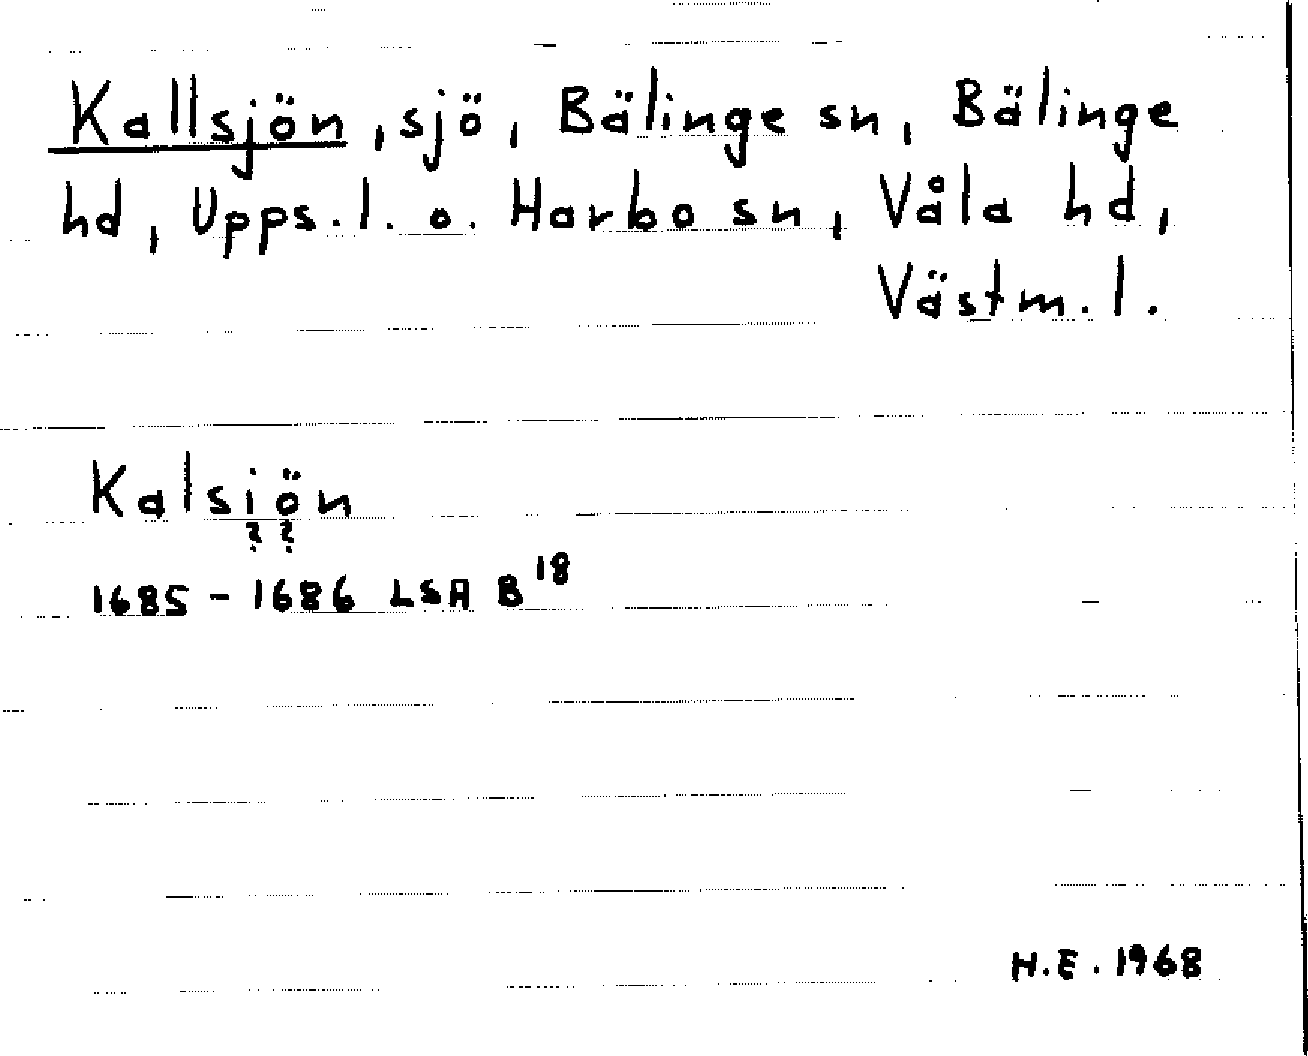 Kallsjön, sjö, Bälinge sn, Bälinge
hd, Upps. l. o. Harbo sn, Våla hd,
Västm. l.
Kalsiön
? ?
1685 - 1686 LSA B 18
H.E. 1968